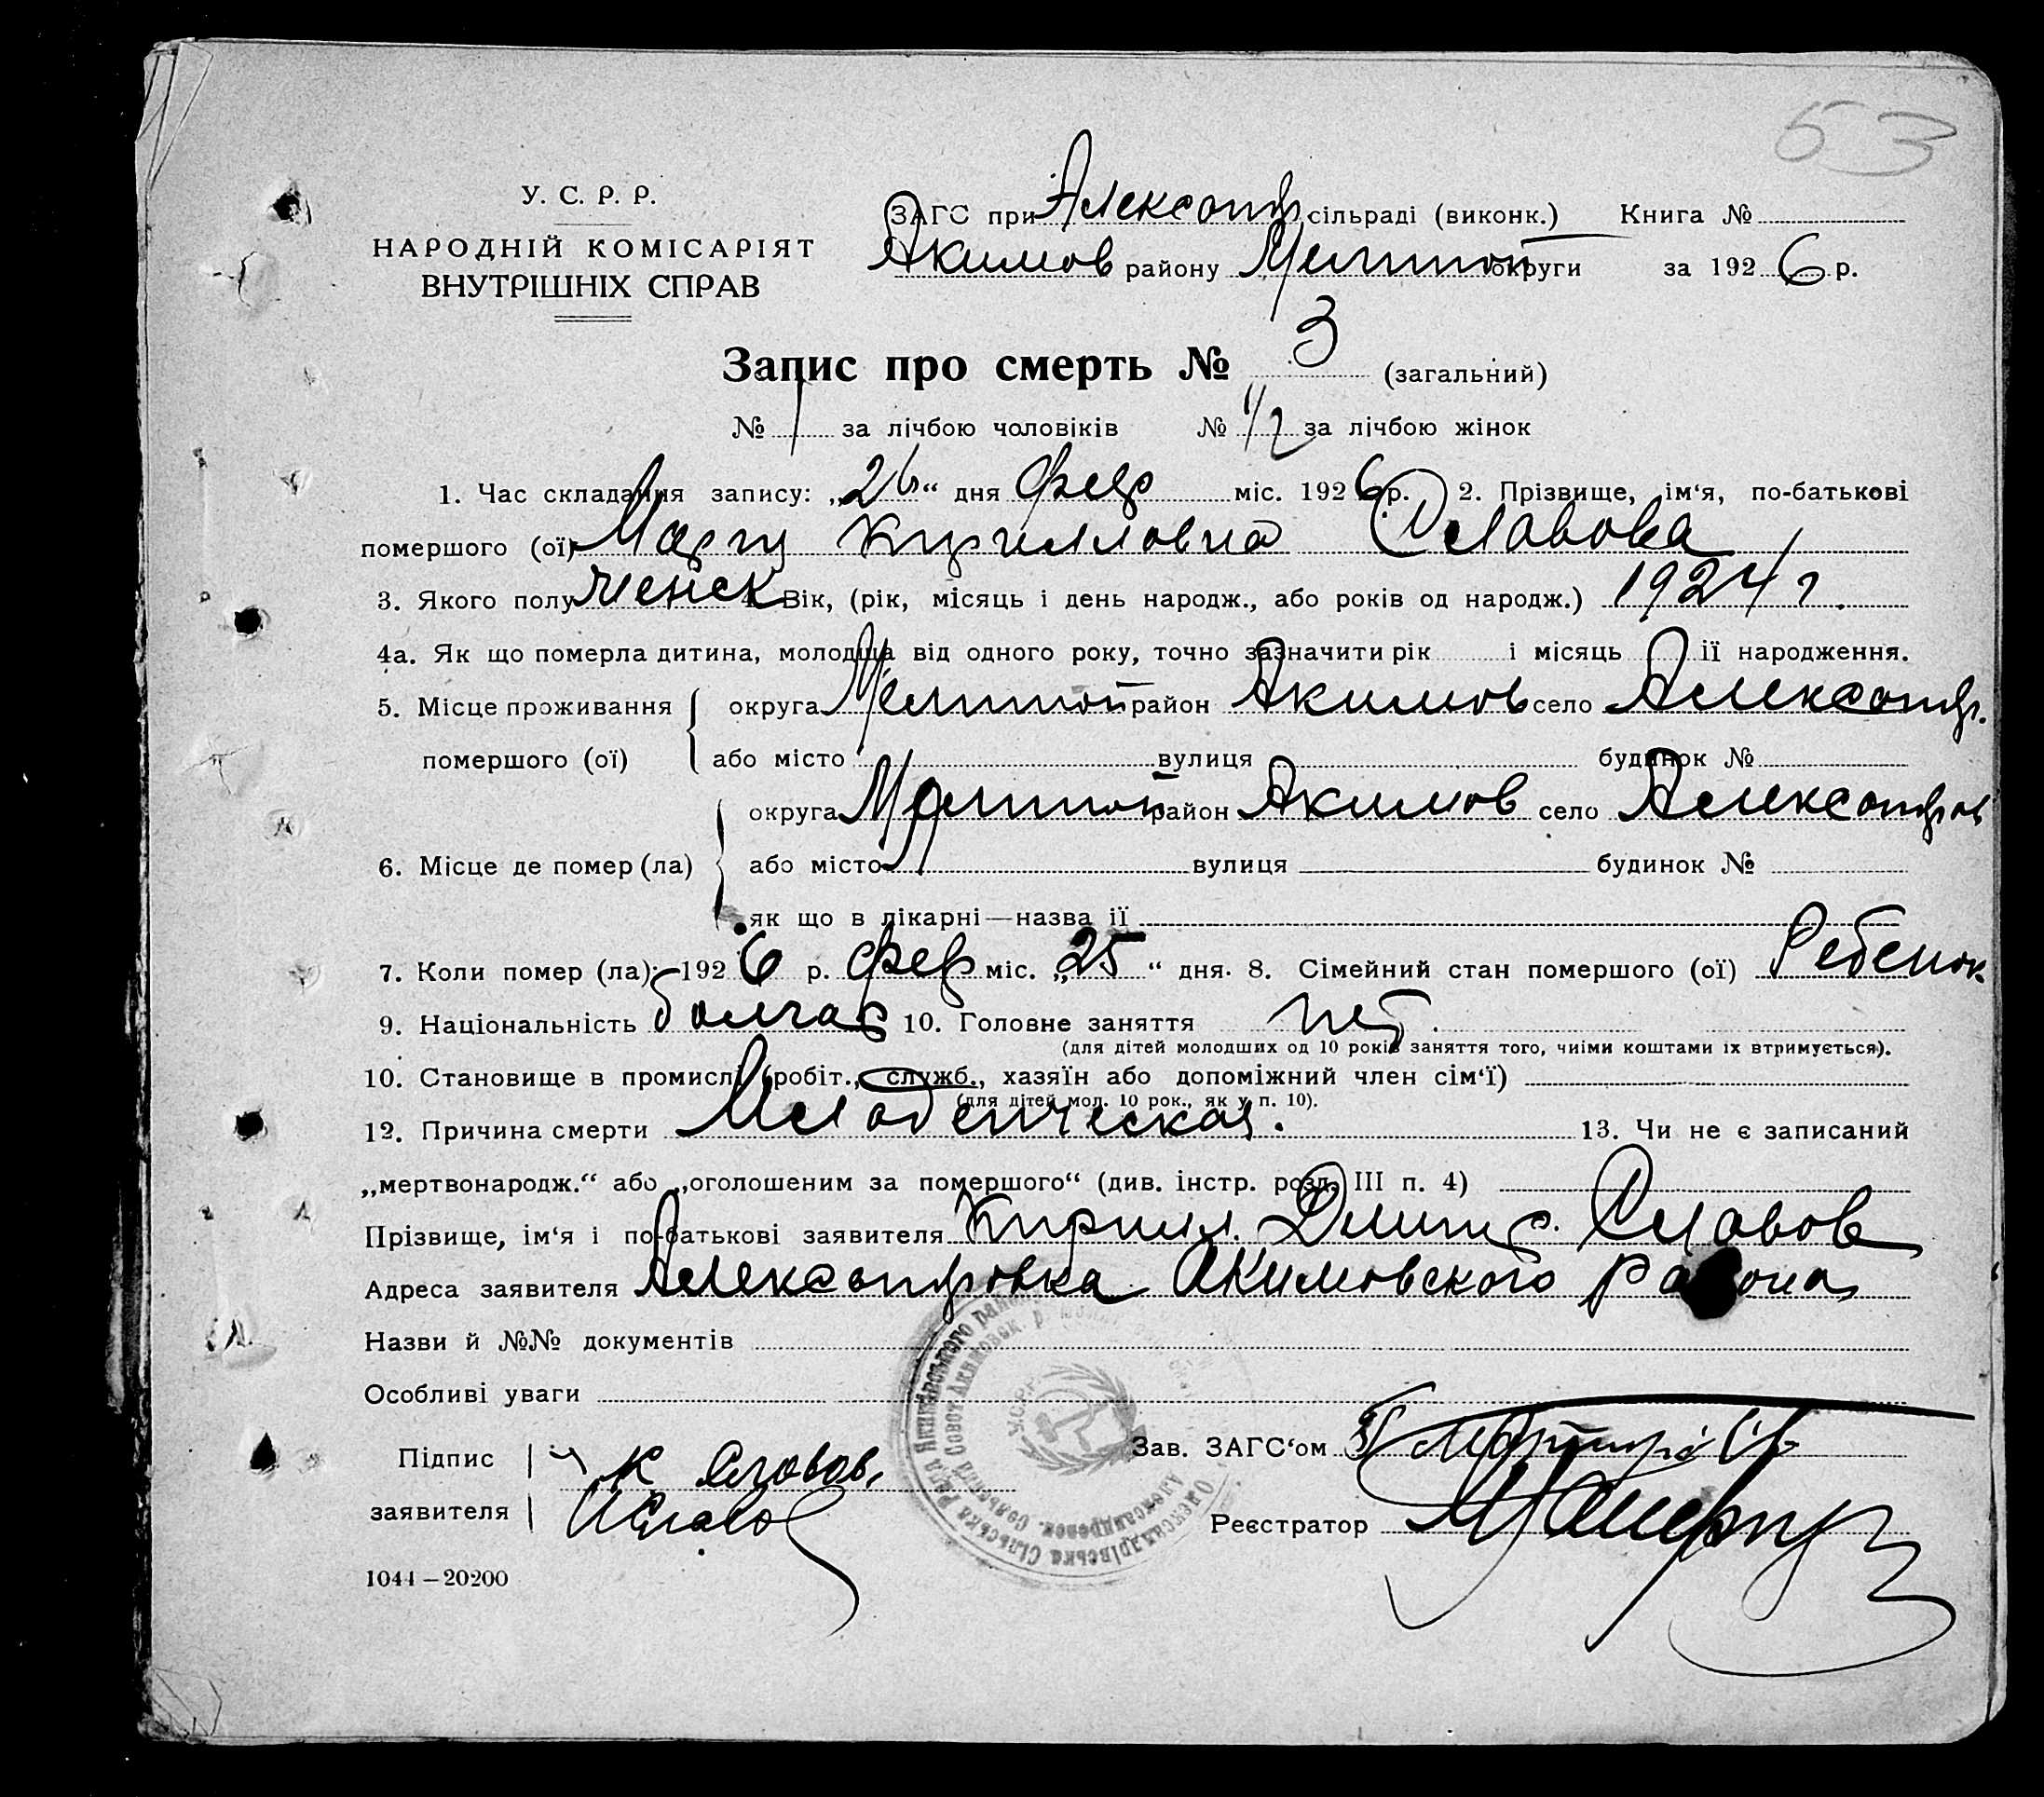 53
У. С. Р. Р.
НАРОДНІЙ КОМІСАРІЯТ
ВНУТРІШНІХ СПРАВ
ЗАГС при Александр сільраді (виконк.) Книга №
Акимов району Мелитоп округи за 1926 р.
Запис про смерть № 3 (загальний)
№ 1 за лічбою чоловіків № 1/2 за лічбою жінок
1. Час складання запису: „26“ дня февр міс. 1926 р. 2. Прізвище, ім‘я, по-батькові
помершого (ої) Кирилловна Славова
3. Якого полу женск 4. Вік, (рік, місяць і день народж., або років од народж.) 1924 г.
4а. Як що померла дитина, молодша від одного року, точно зазначити рік і місяць її народження.
5. Місце проживання округа Мелитоп район Акимов село Александр.
помершого (ої) або місто вулиця будинок №
округа Мелитоп район Акимов село Александров
6. Місце де помер (ла) або місто вулиця будинок №
як що в лікарні — назва її
7. Коли помер (ла): 1926 р. фев міс. „25“ дня. 8. Сімейний стан помершого (ої) Ребенок
9. Національність болгар 10. Головне заняття нет.
(для дітей молодших од 10 років заняття того, чиїми коштами їх втримується).
10. Становище в промислі (робіт., служб., хазяїн або допоміжний член сім‘ї)
(для дітей мол. 10 рок., як у п. 10).
12. Причина смерти Младенческая. 13. Чи не є записаний
„мертвонародж.“ або „оголошеним за помершого“ (див. інстр. розд. III п. 4)
Прізвище, ім‘я і по-батькові заявителя Кирилл. Дмитр. Славов
Адреса заявителя Александровка Акимовского района
Назви й №№ документів
Особливі уваги
Підпис К Славов.
заявителя
Зав. ЗАГС‘ом
Реєстратор
Олександрівська Сільська Рада Якимівського району
У.С.Р.Р.
1044 — 20200